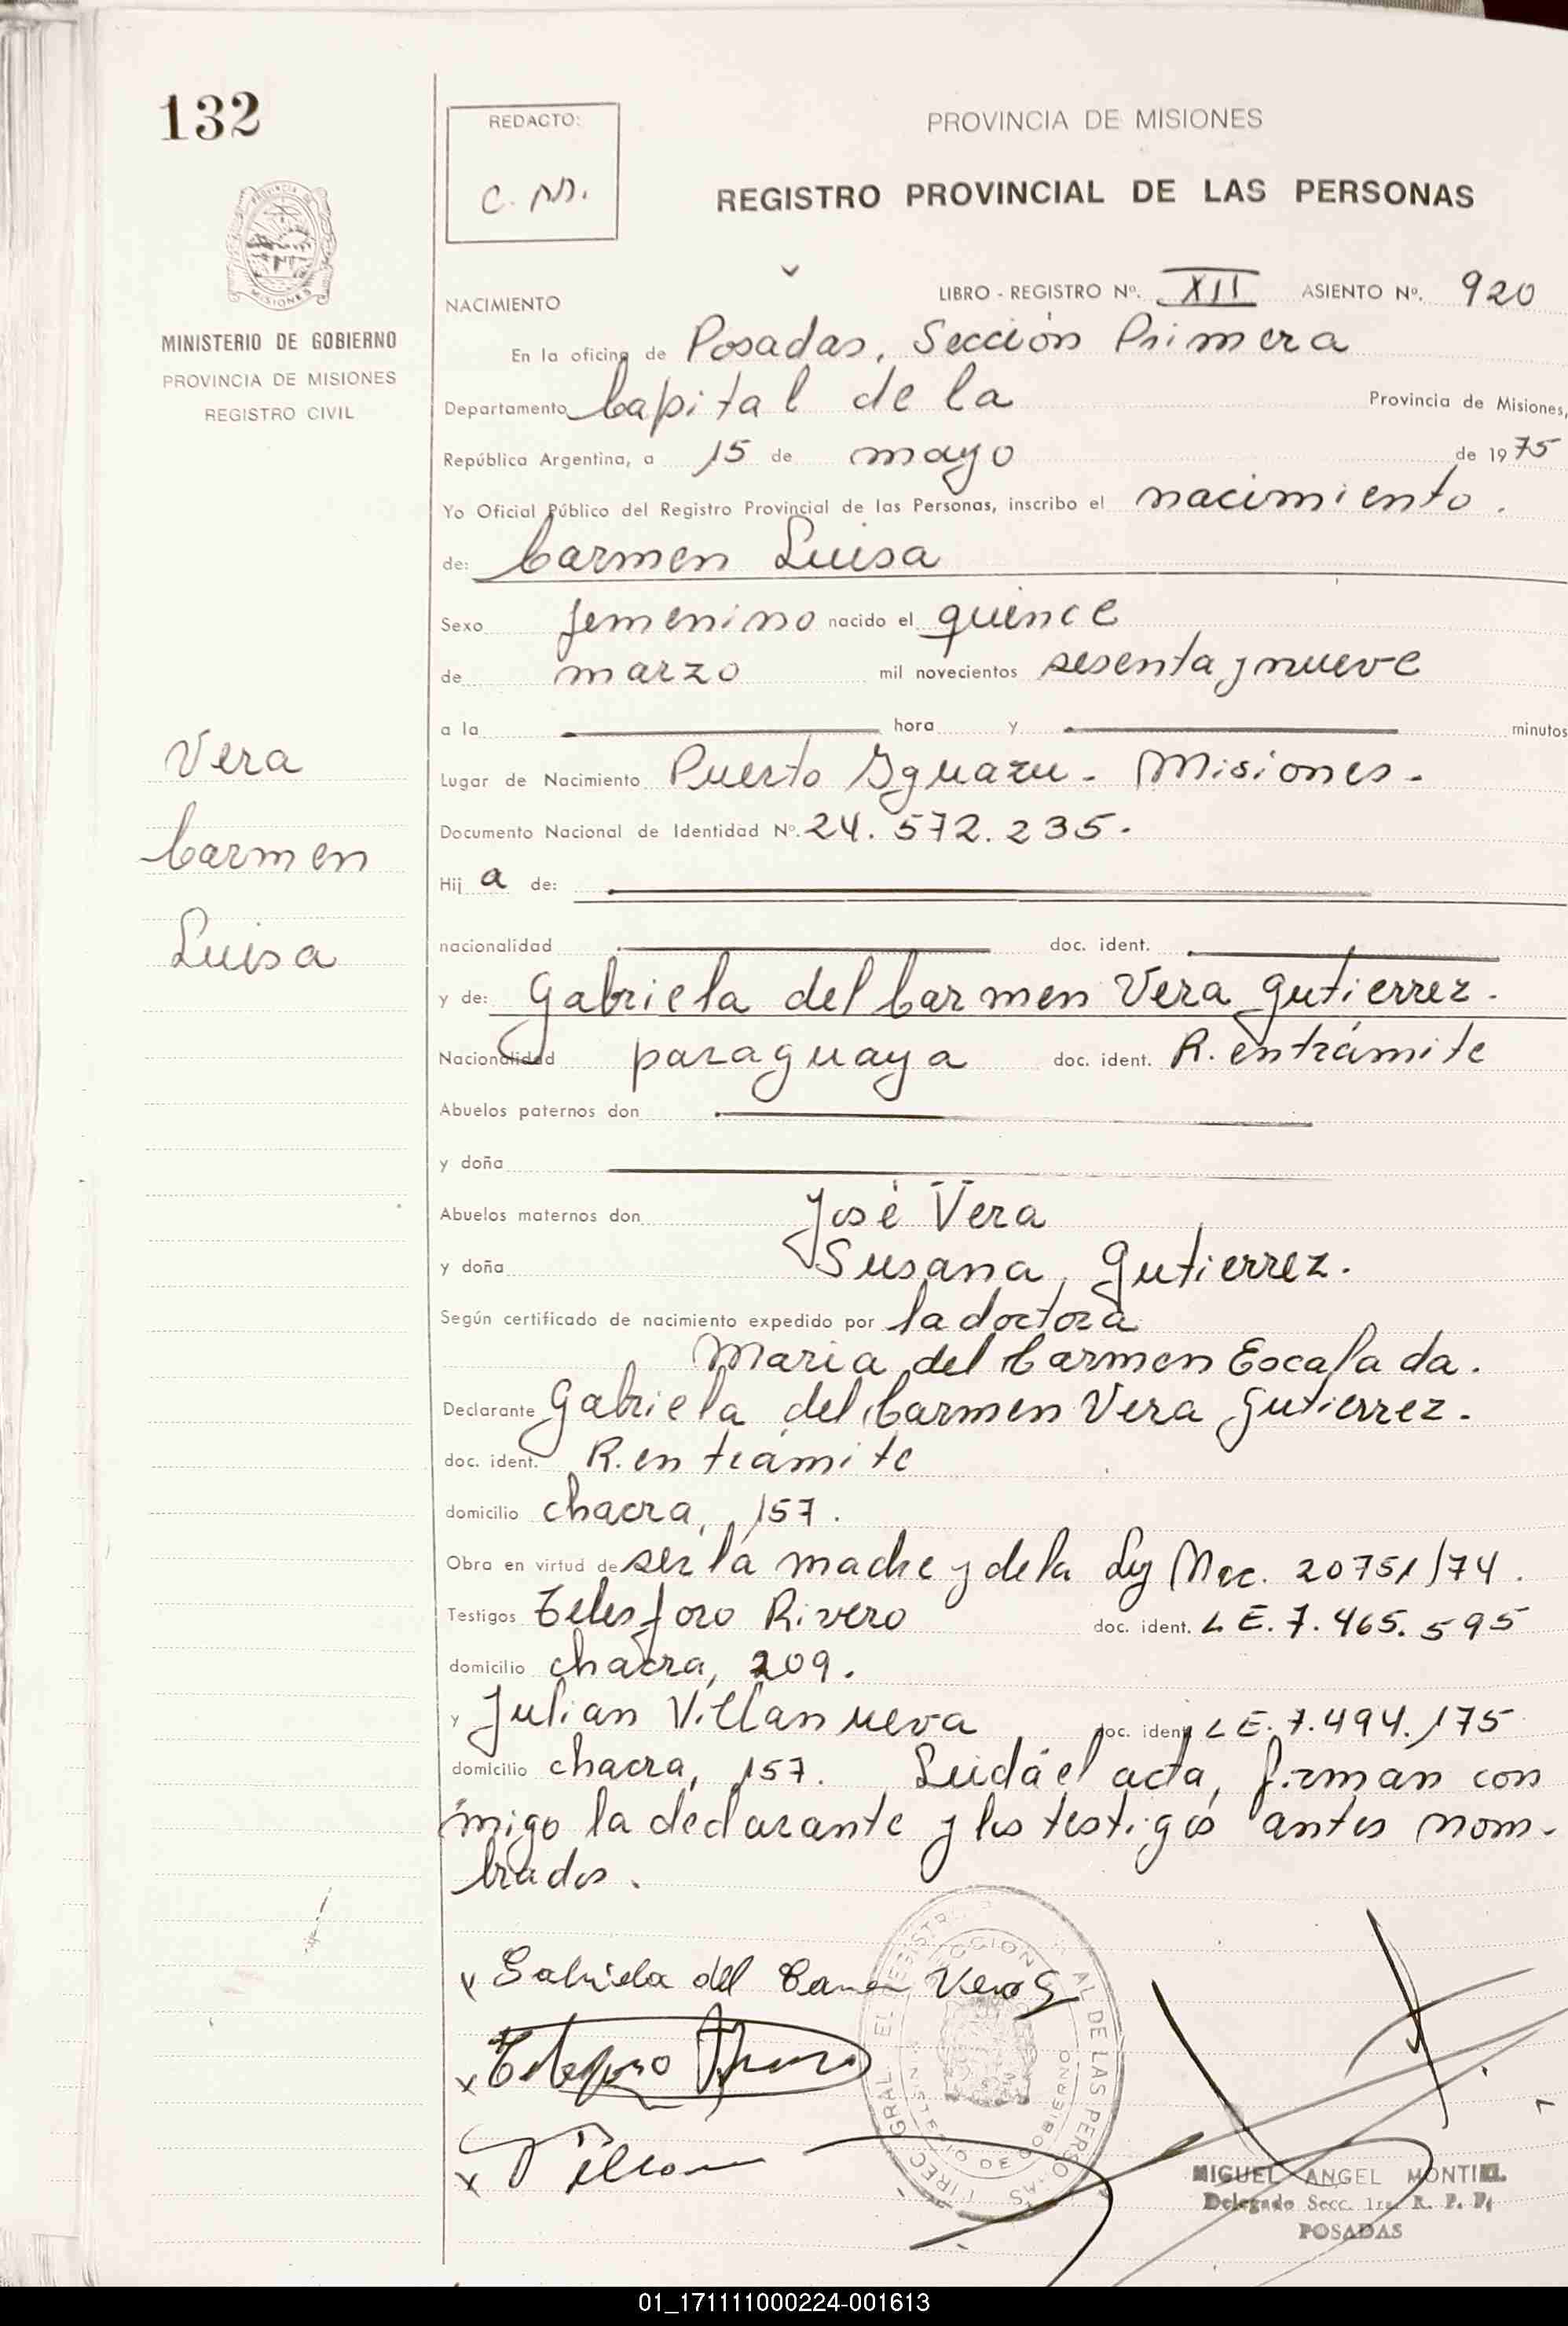 132
REDACTO:
C. M.
PROVINCIA DE MISIONES
REGISTRO PROVINCIAL DE LAS PERSONAS
PROVINCIA DE
MISIONES
MINISTERIO DE GOBIERNO
PROVINCIA DE MISIONES
REGISTRO CIVIL
NACIMIENTO
LIBRO - REGISTRO Nº. XII ASIENTO Nº. 920
En la oficina de Posadas, Sección Primera
Departamento Capital de la Provincia de Misiones,
República Argentina, a 15 de mayo de 1975
Yo Oficial Público del Registro Provincial de las Personas, inscribo el nacimiento.
de: Carmen Luisa
Sexo femenino nacido el quince
de marzo mil novecientos sesenta y nueve
a la hora y minutos
Vera
Carmen
Luisa
Lugar de Nacimiento Puerto Iguazu - Misiones.
Documento Nacional de Identidad Nº. 24. 572. 235.
Hij a de:
nacionalidad doc. ident.
y de: Gabriela del Carmen Vera Gutierrez.
Nacionalidad paraguaya doc. ident. R. en trámite
Abuelos paternos don
y doña
Abuelos maternos don José Vera
y doña Susana Gutierrez.
Según certificado de nacimiento expedido por la doctora
Maria del Carmen Escalada.
Declarante Gabriela del Carmen Vera Gutierrez.
doc. ident. R. en trámite
domicilio chacra, 157.
Obra en virtud de ser la madre y de la Ley Nac. 20751/74.
Testigos Telesforo Rivero doc. ident. L E. 7. 465. 595
domicilio chacra, 209.
y Julian Villanueva doc. ident. L E. 7. 494. 175
domicilio chacra, 157. Leida el acta, firman con
migo la declarante y los testigos antes nom-
brados.
x Gabriela del Carmen Vera G
x Telesforo Rivero
x
MIGUEL ANGEL MONTIEL
Delegado Secc. 1ra. R. P. P.
POSADAS
01_171111000224-001613